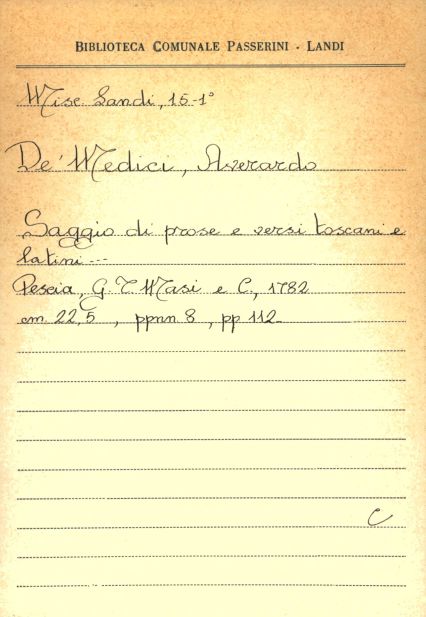 BIBLIOTECA COMUNALE PASSERINI - LANDI
Misc. Landi, 15-1°
De' Medici, Averardo
Saggio di prose e versi toscani e
latini ---
Pescia, G. T. Masi e C., 1782
cm 22,5 , ppnn 8 , pp 112
C